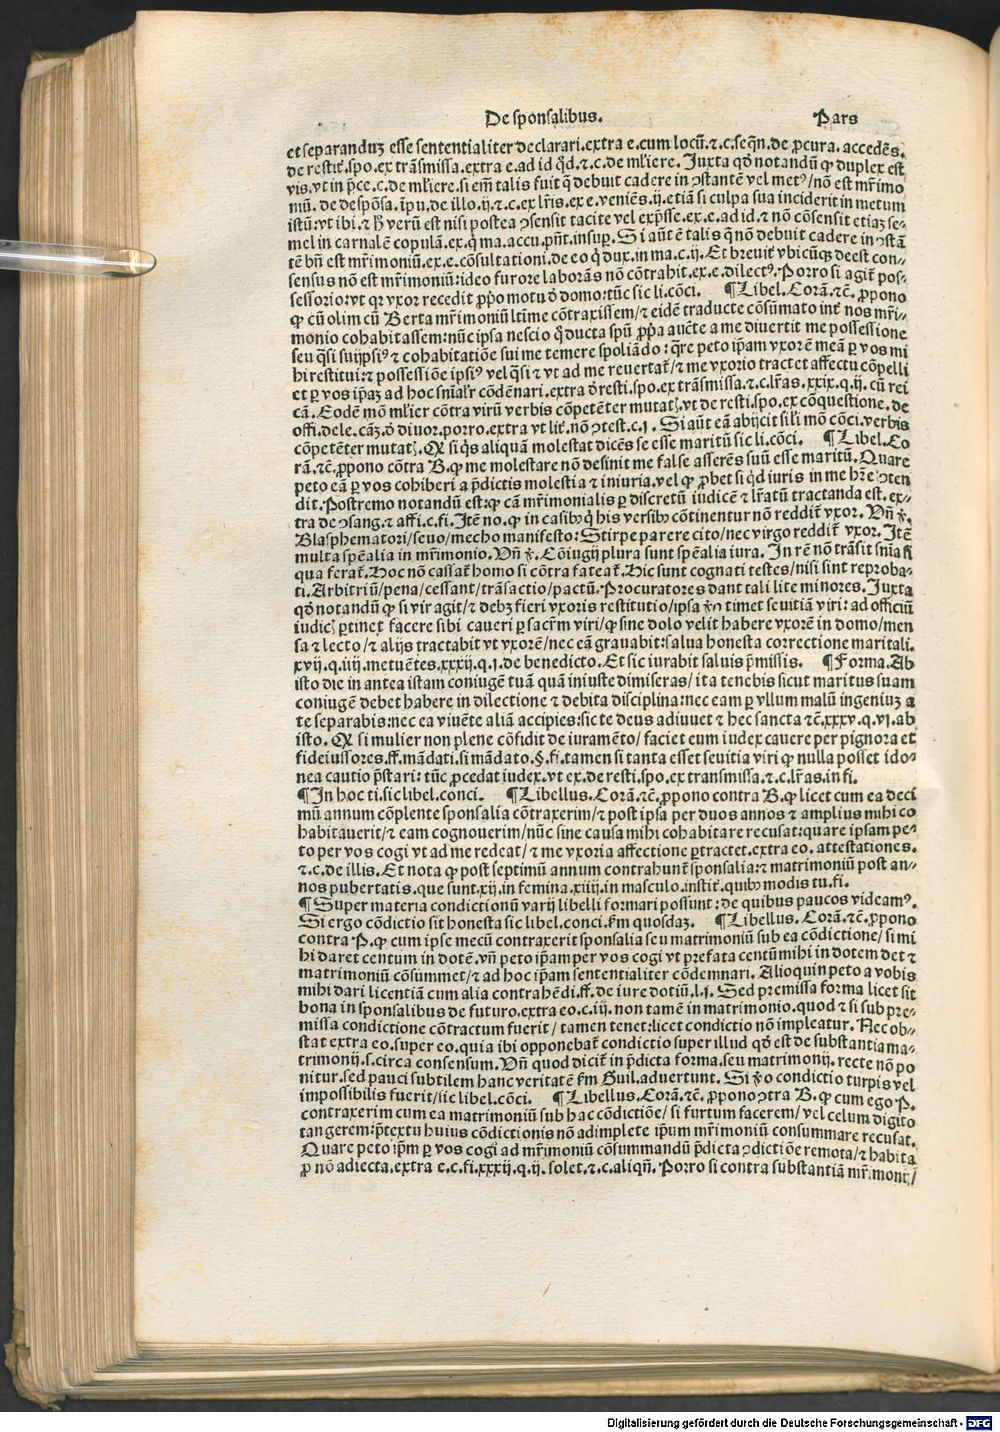 De sponsalibus. Pars
et separanduʒ esse sententialiter declarari. extra e. cum locū. ⁊ .c. seq̄n. de ꝓcura. accedēs.
de restit᷑. spo. ex trāsmissa. extra e. ad id qͥd. ⁊ .c. de ml̕iere. Iuxta qđ notandū ꝙ duplex est
vis. vt in p̄ce. c. de ml̕iere. si em̄ talis fuit q̄ debuit cadere in ꝯstantē vel metꝰ/ nō est mr̄imo
niū. de despōsa. īpu. de illo. ij. ⁊ .c. ex lr̄is. ex e. veniēs. ij. etiā si culpa sua inciderit in metum
istū: vt ibi. ⁊ h̄ verū est nisi postea ꝯsensit tacite vel exp̄sse. ex. e. ad id. ⁊ nō cōsensit etiaʒ se⸗
mel in carnalē copulā. ex. q̄ ma. accu. pn̄t. insuꝑ. Si aūt ē talis q̄ nō debuit cadere in ꝯstā
tē bn̄ est mr̄imoniū. ex. e. cōsultationi. de eo q̄ dux. in ma. c. ij. Et breuit᷑ vbicūqꝫ deest con⸗
sensus nō est mr̄imoniū: ideo furore laborās nō cōtrahit. ex. e. dilectꝰ. Porro si agit᷑ pos⸗
sessorio: vt qꝛ vxor recedit ꝓp̄o motu đ domo: tūc sic li. cōci. ¶ Libel. Corā. ⁊c̄. ꝓpono
ꝙ cū olim cū Berta mr̄imoniū ltīme cōtraxissem/ ⁊ eidē traducte cōsūmato int᷑ nos mr̄i⸗
monio cohabitassem: nūc ipsa nescio q̄ ducta spū ꝓp̄a auc̄te a me diuertit me possessione
seu q̄si sui ipsiꝰ ⁊ cohabitatiōe sui me temere spoliādo: q̄re peto ip̄am vxorē meā ꝑ vos mi
hi restitui: ⁊ possessiōe ipsiꝰ vel q̄si ⁊ vt ad me reuertat᷑/ ⁊ me vxorio tractet affectu cōpelli
et ꝑ vos ip̄aʒ ad hoc sn̄ial'r cōdēnari. extra đ resti. spo. ex trāsmissa. ⁊ .c. lr̄as. xxix. q. ij. cū rei
cā. Eodē mō ml̕ier cōtra virū verbis cōpetēter mutatꝭ. vt de resti. spo. ex cōquestione. de
offi. dele. cāʒ. đ diuor. porro. extra vt lit᷑. nō ꝯtest. c. j. Si aūt eā abijcit sil'i mō cōci. verbis
cōpetēter mutatꝭ. Qꝫ si q̄s aliquā molestat dicēs se esse maritū sic li. cōci. ¶ Libel. Co
rā. ⁊c̄. ꝓpono cōtra B. ꝙ me molestare nō desinit me false asserēs suū esse maritū. Quare
peto eā ꝑ vos cohiberi a p̄dictis molestia ⁊ iniuria. vel ꝙ ꝓbet si qͥd iuris in me hr̄e ꝯten
dit. Postremo notandū est: ꝙ cā mr̄imonialis ꝑ discretū iudicē ⁊ lr̄atū tractanda est. ex⸗
tra de ꝯsang. ⁊ affi. c. fi. Itē no. ꝙ in casibꝰ q̄ his versibꝰ cōtinentur nō reddit᷑ vxor. Vn̄ v̄.
Blasphematori/ seuo/ mecho manifesto: Stirpe parere cito/ nec virgo reddit᷑ vxor. Itē
multa spēalia in mr̄imonio. Vn̄ v̄. Cōiugij plura sunt spēalia iura. In rē nō trāsit sn̄ia si
qua ferat᷑. Hoc nō cassat᷑ homo si cōtra fateat᷑. Hic sunt cognati testes/ nisi sint reproba⸗
ti. Arbitriū/ pena/ cessant/ trāsactio/ pactū. Procuratores dant tali lite minores. Iuxta
qđ notandū ꝙ si vir agit/ ⁊ debʒ fieri vxoris restitutio/ ipsa v̊o timet seuitiā viri: ad officiū
iudicꝭ ꝑtinet facere sibi caueri ꝑ sacr̄m viri/ ꝙ sine dolo velit habere vxorē in domo/ men
sa ⁊ lecto/ ⁊ alijs tractabit vt vxorē/ nec eā grauabit: salua honesta correctione maritali.
xvij. q. iiij. metuētes. xxxij. q. j. de benedicto. Et sic iurabit saluis p̄missis. ¶ Forma. Ab
isto die in antea istam coniugē tuā quā iniuste dimiseras/ ita tenebis sicut maritus suam
coniugē debet habere in dilectione ⁊ debita disciplina: nec eam ꝑ vllum malū ingeniuʒ a
te separabis: nec ea viuēte aliā accipies: sic te deus adiuuet ⁊ hec sancta ⁊c̄. xxxv. q. vj. ab
isto. Qꝫ si mulier non plene cōfidit de iuramēto/ faciet eum iudex cauere per pignora et
fideiussores. ff. mādati. si mādato. §. fi. tamen si tanta esset seuitia viri ꝙ nulla posset ido⸗
nea cautio p̄stari: tūc ꝓcedat iudex. vt ex. de resti. spo. ex transmissa. ⁊ .c. lr̄as. in fi.
¶ In hoc ti. sic libel. conci. ¶ Libellus. Corā. ⁊c̄. ꝓpono contra B. ꝙ licet cum ea deci
mū annum cōplente sponsalia cōtraxerim/ ⁊ post ipsa per duos annos ⁊ amplius mihi co
habitauerit/ ⁊ eam cognouerim/ nūc sine causa mihi cohabitare recusat: quare ipsam pe⸗
to per vos cogi vt ad me redeat/ ⁊ me vxoria affectione ꝑtractet. extra eo. attestationes.
⁊ .c. de illis. Et nota ꝙ post septimū annum contrahunt᷑ sponsalia: ⁊ matrimoniū post an⸗
nos pubertatis. que sunt. xij. in femina. xiiij. in masculo. instit᷑. quibꝰ modis tu. fi.
¶ Super materia condictionū varij libelli formari possunt: de quibus paucos videamꝰ.
Si ergo cōdictio sit honesta sic libel. conci. km̄ quosdaʒ. ¶ Libellus. Corā. ⁊c̄. ꝓpono
contra P. ꝙ cum ipse mecū contraxerit sponsalia seu matrimoniū sub ea cōdictione/ si mi
hi daret centum in dotē. vn̄ peto ip̄am per vos cogi vt prefata centū mihi in dotem det ⁊
matrimoniū cōsūmmet/ ⁊ ad hoc ip̄am sententialiter cōdemnari. Alioquin peto a vobis
mihi dari licentiā cum alia contrahēdi. ff. de iure dotiū. l. j. Sed premissa forma licet sit
bona in sponsalibus de futuro. extra eo. c. iij. non tamē in matrimonio. quod ⁊ si sub pre⸗
missa condictione cōtractum fuerit/ tamen tenet: licet condictio nō impleatur. Nec ob⸗
stat extra eo. super eo. quia ibi opponebat᷑ condictio super illud qđ est de substantia ma⸗
trimonij. s. circa consensum. Vn̄ quod dicit᷑ in p̄dicta forma. seu matrimonij. recte nō po
nitur. sed pauci subtilem hanc veritatē km̄ Guil. aduertunt. Si v̊o condictio turpis vel
impossibilis fuerit/ sic libel. cōci. ¶ Libellus. Corā. ⁊c̄. ꝓpono ꝯtra B. ꝙ cum ego P.
contraxerim cum ea matrimoniū sub hac cōdictiōe/ si furtum facerem/ vel celum digito
tangerem: p̄textu huius cōdictionis nō adimplete ip̄um mr̄imoniū consummare recusat.
Quare peto ip̄m ꝑ vos cogi ad mr̄imoniū cōsummandū p̄dicta ꝯdictiōe remota/ ⁊ habita
ꝓ nō adiecta. extra e. c. fi. xxxij. q. ij. solet. ⁊ .c. aliqn̄. Porro si contra substantiā mr̄imonij/
Digitalisierung gefördert durch die Deutsche Forschungsgemeinschaft - DFG